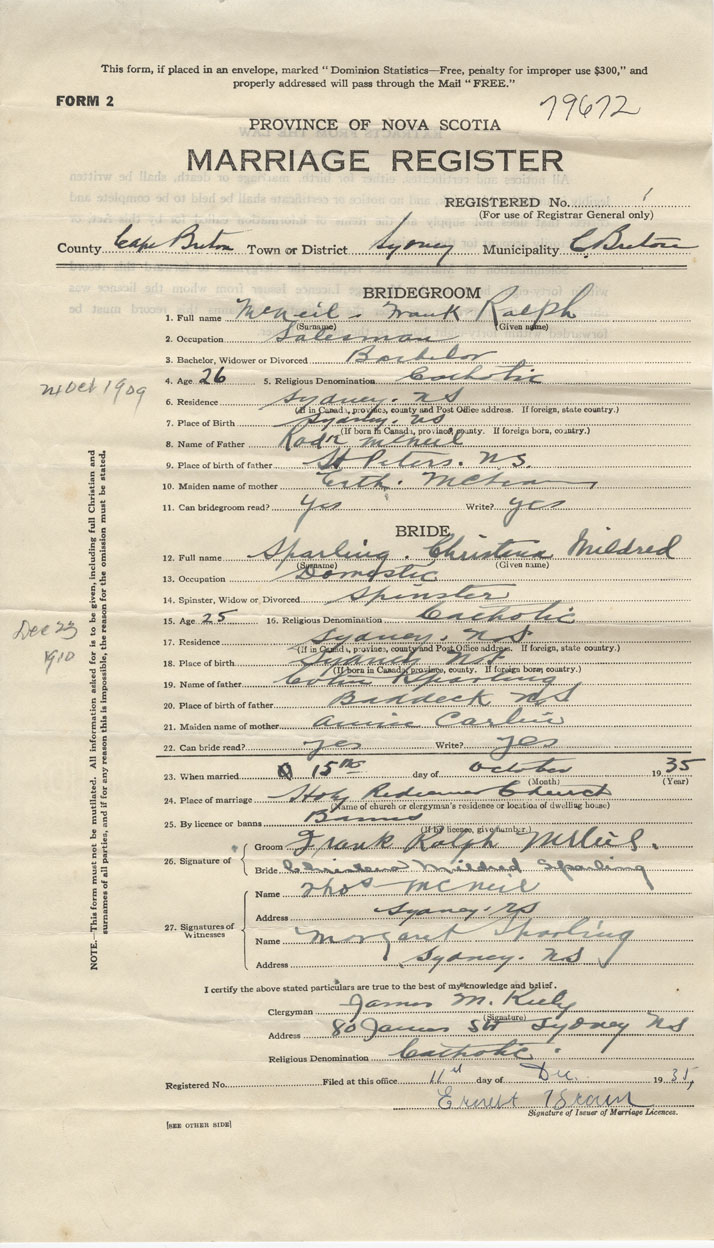 This form, if placed in an envelope, marked "Dominion Statistics—Free, penalty for improper use $300," and
properly addressed will pass through the Mail "FREE."
FORM 2
79672
PROVINCE OF NOVA SCOTIA
MARRIAGE REGISTER
REGISTERED No.
(For use of Registrar General only)
County Cape Breton Town or District Sydney Municipality C Breton
BRIDEGROOM
1. Full name McNeil - Frank Ralph
(Surname) (Given name)
2. Occupation Salesman
3. Bachelor, Widower or Divorced Bachelor
4. Age 26 5. Religious Denomination Catholic
Oct 1909
6. Residence Sydney. NS
(If in Canada, province, county and Post Office address. If foreign, state country.)
7. Place of Birth Sydney. NS
(If born in Canada, province, county. If foreign born, country.)
8. Name of Father McNeil
9. Place of birth of father St Peters. N.S.
10. Maiden name of mother
11. Can bridegroom read? yes Write? yes
BRIDE
12. Full name Sparling. Christena Mildred
(Surname) (Given name)
13. Occupation Domestic
14. Spinster, Widow or Divorced Spinster
15. Age 25 16. Religious Denomination Catholic
Dec 23
1910
17. Residence Sydney. N.S
(If in Canada, province, county and Post Office address. If foreign, state country.)
18. Place of birth Sydney N.S
(If born in Canada, province, county. If foreign born, country.)
19. Name of father Sparling
20. Place of birth of father Baddeck N.S
21. Maiden name of mother Annie
22. Can bride read? yes Write? yes
23. When married 15th day of October 1935
(Month) (Year)
24. Place of marriage Holy Redeemer Church
(Name of church or clergyman's residence or location of dwelling house)
25. By licence or banns Banns
(If by licence, give number.)
26. Signature of Groom Frank Ralph McNeil.
Bride Christena Mildred Sparling
27. Signatures of Witnesses
Name Thos McNeil
Address Sydney. NS
Name Margaret Sparling
Address Sydney. NS
I certify the above stated particulars are true to the best of my knowledge and belief.
Clergyman James M. Kiely
(Signature)
Address 80 James St Sydney NS
Religious Denomination Catholic.
Registered No. Filed at this office 11th day of Dec. 1935,
Signature of Issuer of Marriage Licences.
[SEE OTHER SIDE]
NOTE.—This form must not be mutilated. All information asked for is to be given, including full Christian and
surnames of all parties, and if for any reason this is impossible, the reason for the omission must be stated.